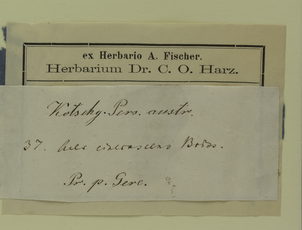 ex Herbario A. Fischer.
Herbarium Dr. C. O. Harz.
Kotschy. Pers. austr.
37. Boiss.
Pr. p. Gere.